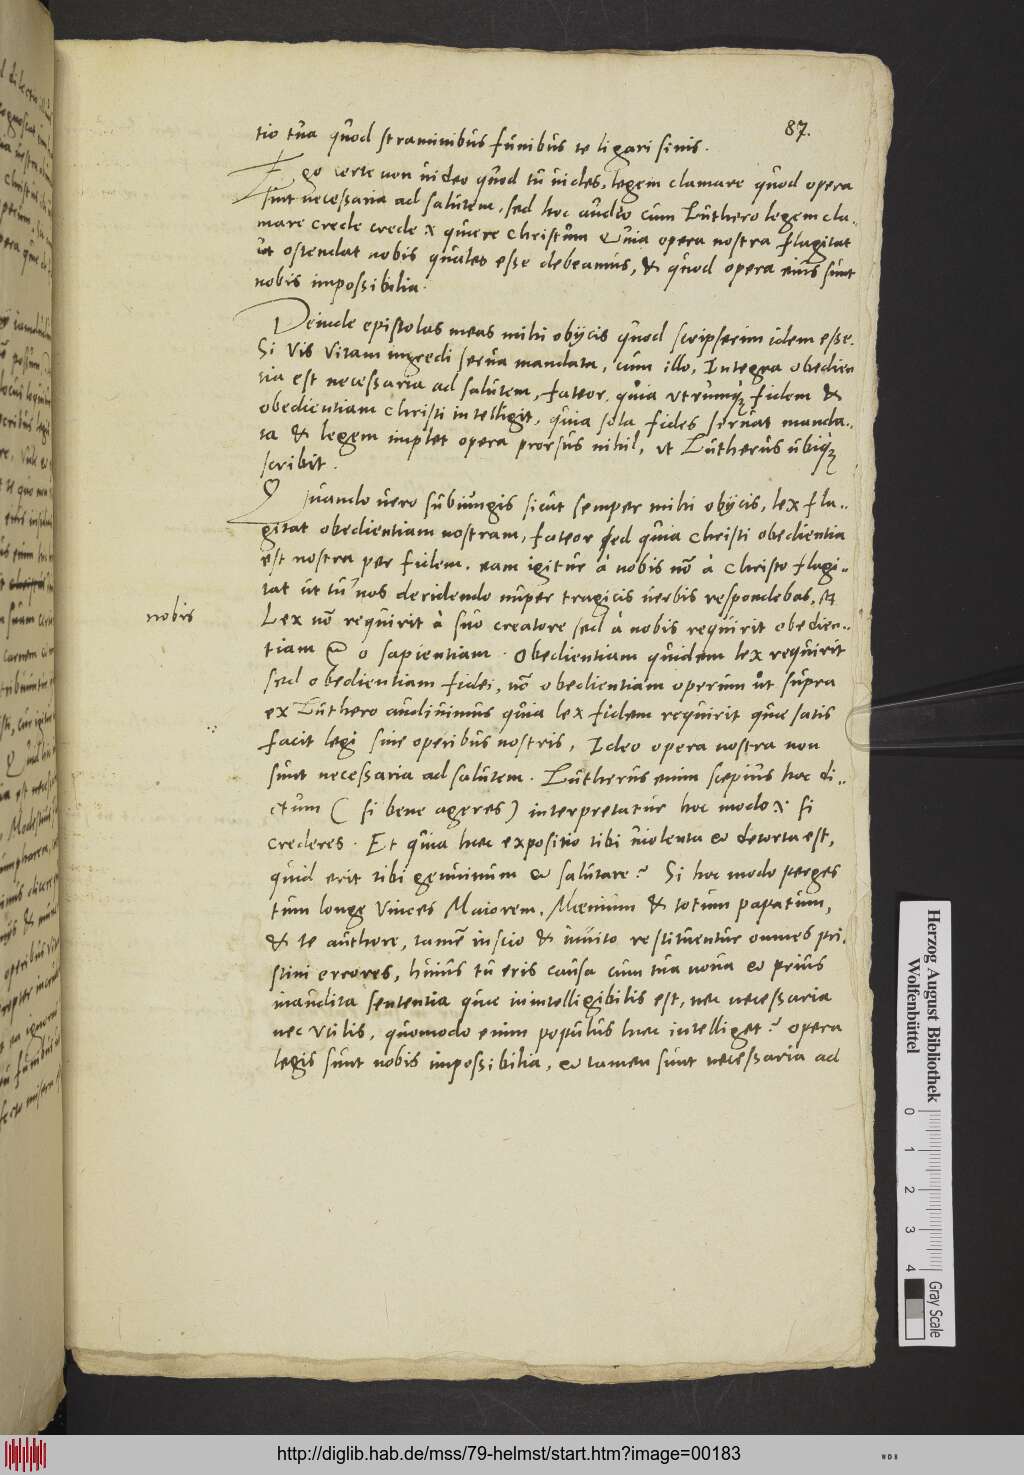 87.
tio tua quod straminibus funibus te ligari sinis.
Ego certe non uideo quod tu uides, legem clamare quod opera
sint necessaria ad salutem, sed hoc audio cum Luthero legem cla-
mare crede crede x quere Christum Quia opera nostra flagitat
ut ostendat nobis quales esse debeamus, & quod opera eius sunt
nobis impossibilia.
Deinde epistolas meas mihi obijcis quod scripserim idem esse.
Si Vis Vitam ingredi serua mandata, cum illo, Integra obedien
tia est necessaria ad salutem, fateor, quia vtrumq; fidem &
obedientiam Christi intelligit, quia sola fides seruat manda-
ta & legem implet opera prorsus nihil, vt Lutherus ubiq;
scribit.
Quando uero subiungis sicut semper mihi obijcis, lex fla-
gitat obedientiam nostram, fateor sed quia Christi obedientia
est nostra per fidem. eam igitur à nobis nō à Christo flagi-
tat ut tu nos deridendo nuper tragicis uerbis respondebas, &
nobis
Lex nō requirit à suo creatore sed à nobis requirit obedien-
tiam o sapientiam. Obedientiam quidem lex requirit
sed obedientiam fidei, nō obedientiam operum ut supra
ex Luthero audiuimus quia lex fidem requirit que satis
facit legi sine operibus nostris, Ideo opera nostra non
sunt necessaria ad salutem. Lutherus enim sæpius hoc di-
ctum (si bene ageres) interpretatur hoc modo x. si
crederes. Et quia hæc expositio tibi uiolenta & detorta est,
quid erit tibi genuinum & salutare? Si hoc modo perges
tum longe Vinces Maiorem, Mænium & totum papatum,
& te authore, tamē inscio & inuito restituentur omnes pri-
stini errores, huius tu eris causa cum tua noua & prius
inaudita sententia quæ inintelligibilis est, nec necessaria
nec Vtilis, quomodo enim populus hæc intelliget? opera
legis sunt nobis impossibilia, & tamen sunt necessaria ad
Herzog August Bibliothek
Wolfenbüttel
0 1 2 3 4
Gray Scale
http://diglib.hab.de/mss/79-helmst/start.htm?image=00183
WDB